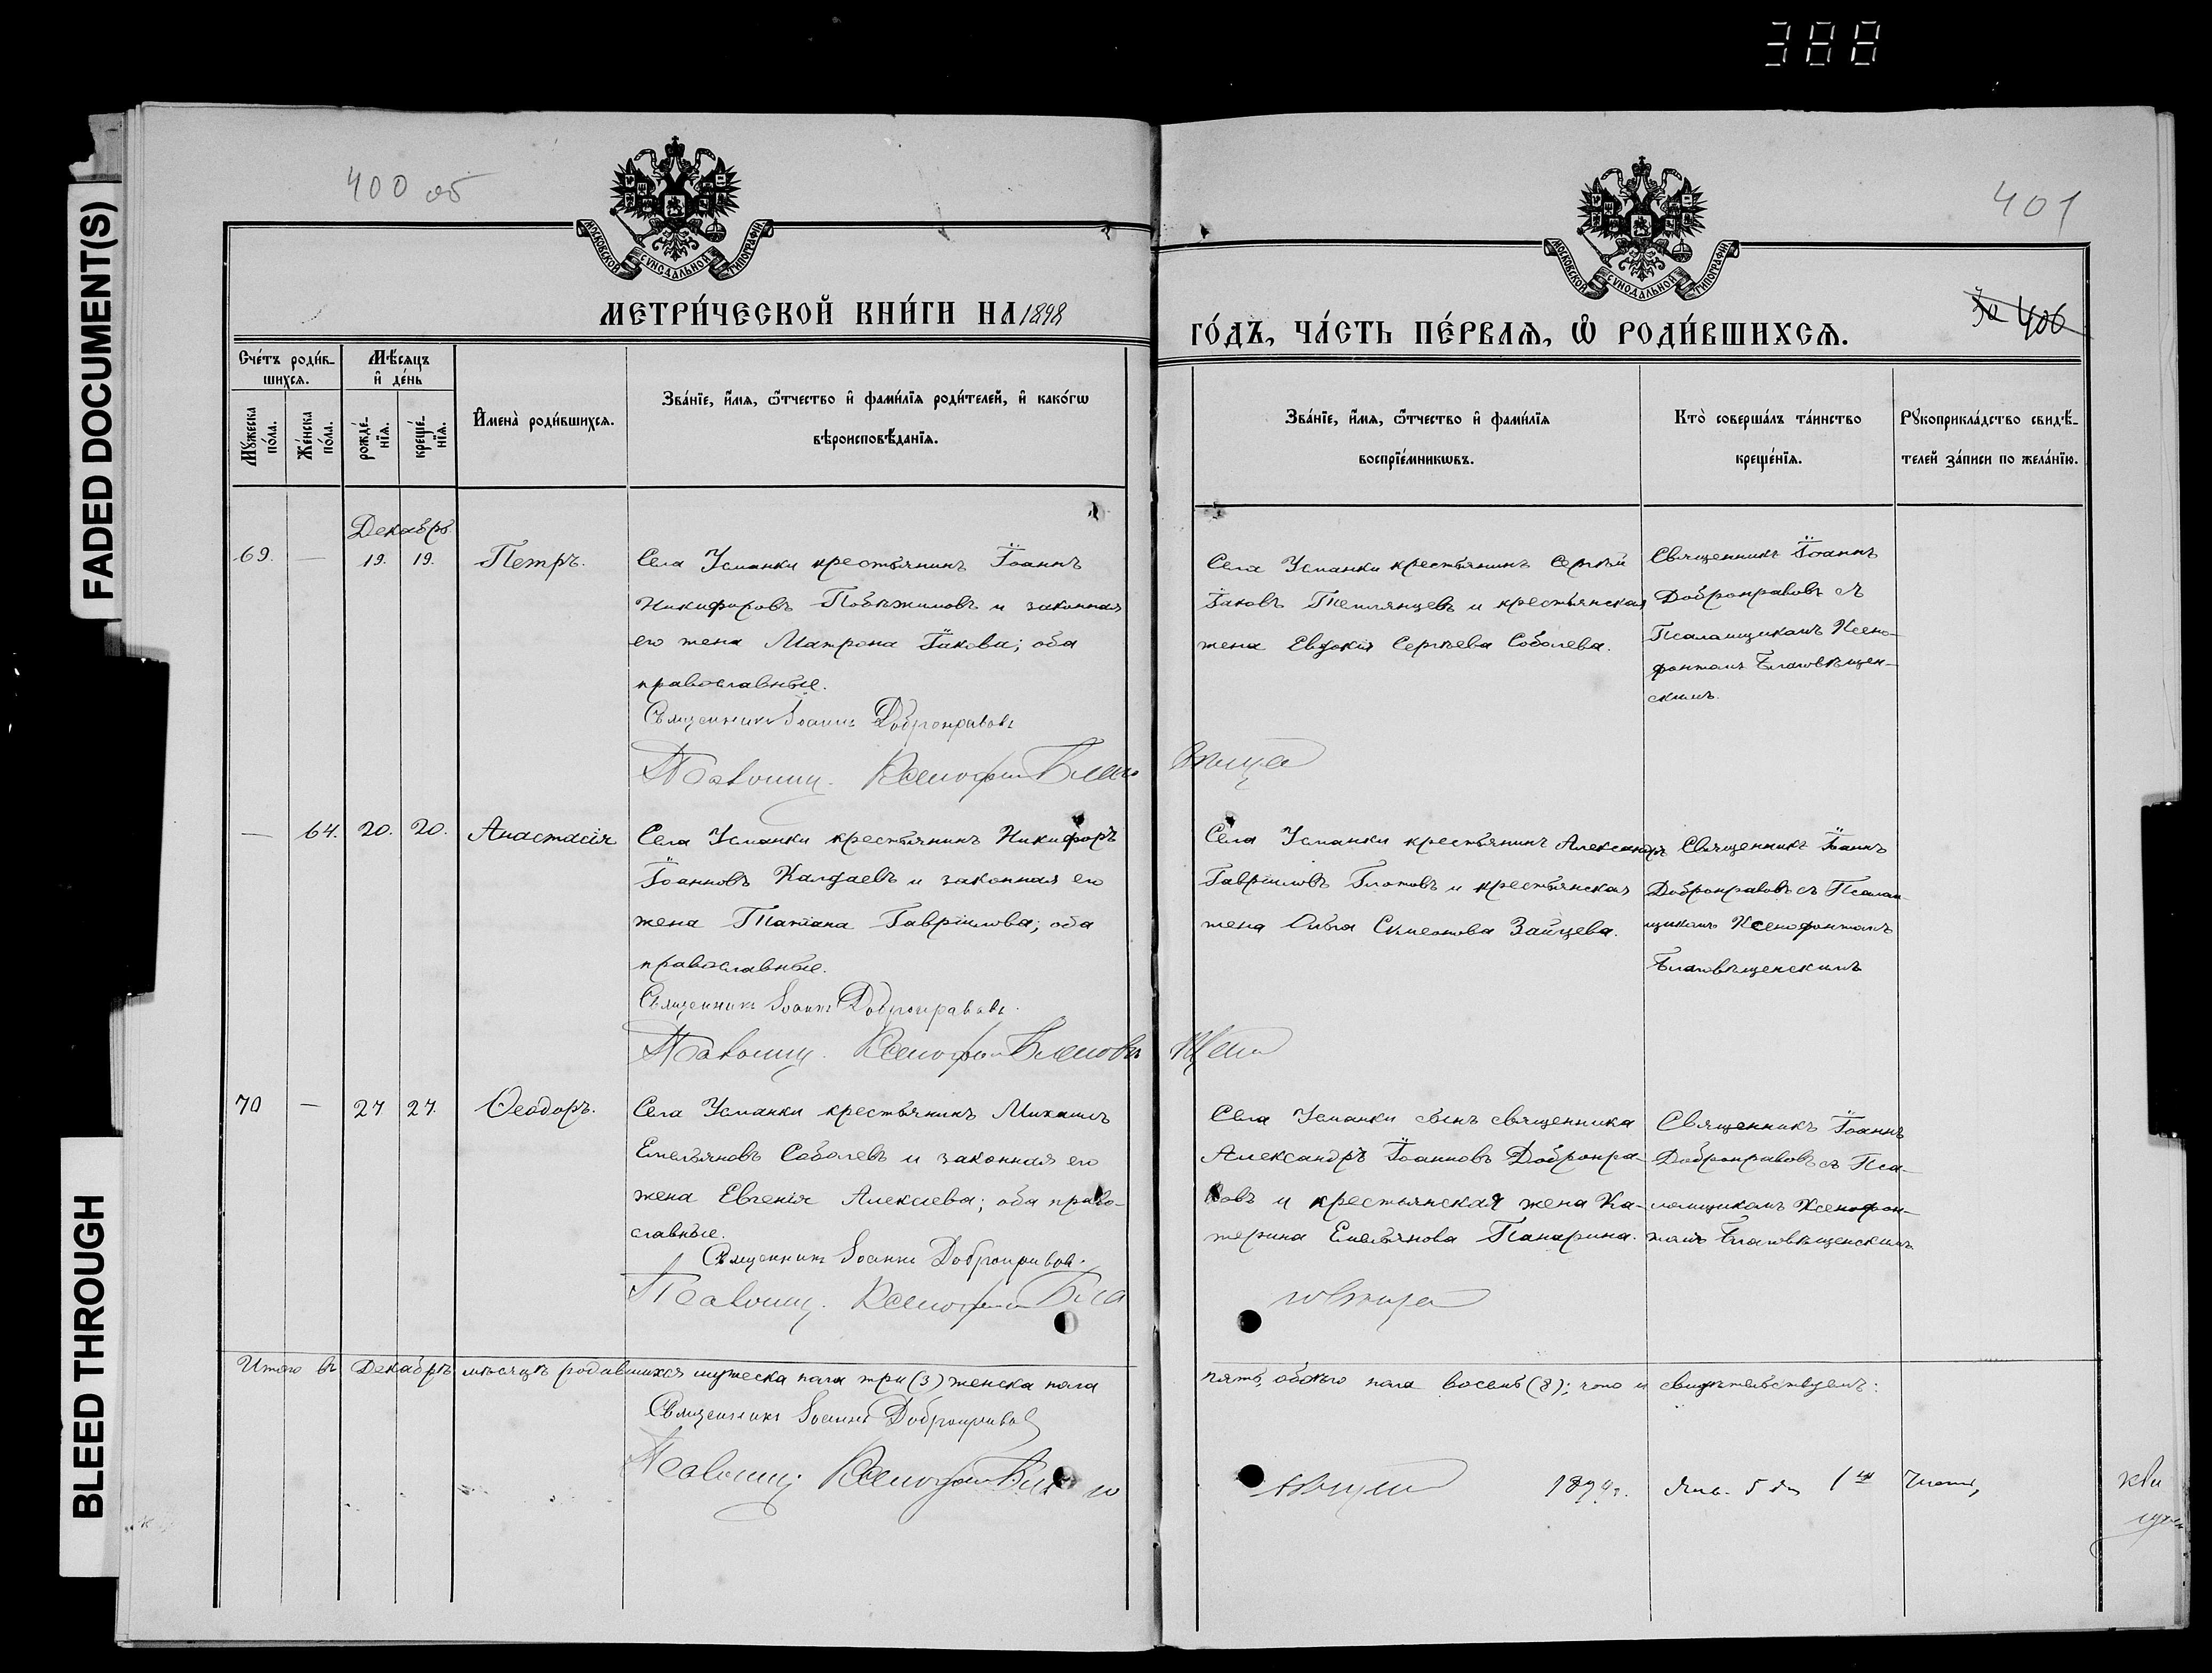 388
FADED DOCUMENT(S)
BLEED THROUGH
400 об
401
МОСКОВСКОЙ СѴНОДАЛЬНОЙ ТИПОГРАФІИ
МОСКОВСКОЙ СѴНОДАЛЬНОЙ ТИПОГРАФІИ
МЕТРИ́ЧЕСКОЙ КНИ́ГИ НА 1898
ГО́ДЪ, ЧА́СТЬ ПЕ́РВАѦ, Ѽ РОДИ́ВШИХСѦ.
406
Сче́тъ роди́в-
шихсѧ.
Мꙋжеска по́ла.
Же́нска по́ла.
Мѣ́сѧцъ
и҆ де́нь
рожде́-
нїѧ.
креще́-
нїѧ.
И҆мена̀ роди́вшихсѧ.
Зва́нїе, и҆́мѧ, ѻ҆́тчество и҆ фами́лїѧ роди́телей, и҆ како́гѡ
вѣроисповѣ́данїѧ.
Зва́нїе, и҆́мѧ, ѻ҆́тчество и҆ фами́лїѧ
воспрїе́мникѡвъ.
Кто̀ соверша́лъ та́инство
креще́нїѧ.
Рꙋкоприкла́дство свидѣ́-
телей за́писи по жела́нїю.
Декабрь
69. — 19. 19. Петръ.
Села Усманки крестьянинъ Іоаннъ
Никифоровъ Побѣжимовъ и законная
его жена Матрона Іакова; оба
православные.
Священникъ Іоаннъ Добронравовъ
Псаломщ. Ксенофон Благо
вѣще
Села Усманки крестьянинъ Сергѣй
Іаковъ Темлянцевъ и крестьянская
жена Евдокія Сергѣева Соболева.
Священникъ Іоаннъ
Добронравовъ съ
Псаломщикомъ Ксено-
фонтомъ Благовѣщен-
скимъ.
— 64. 20. 20. Анастасія
Села Усманки крестьянинъ Никифоръ
Іоанновъ Калдаевъ и законная его
жена Татіана Гавріилова; оба
православные.
Священникъ Іоаннъ Добронравовъ.
Псаломщ. Ксенофон Благовѣ
щен
Села Усманки крестьянинъ Александръ
Гавріиловъ Глотовъ и крестьянская
жена Ольга Симеонова Зайцева.
Священникъ Іоаннъ
Добронравовъ съ Псалом-
щикомъ Ксенофонтомъ
Благовѣщенскимъ
70 — 27 27. Ѳеодоръ.
Села Усманки крестьянинъ Михаилъ
Емельяновъ Соболевъ и законная его
жена Евгенія Алексіева; оба право-
славные.
Священникъ Іоаннъ Добронравов.
Псаломщ. Ксенофон Бла
говѣще
Села Усманки сынъ священника
Александръ Іоанновъ Добронра-
вовъ и крестьянская жена Ка-
терина Емельянова Панарина.
Священникъ Іоаннъ
Добронравовъ съ Пса-
ломщикомъ Ксенофон-
томъ Благовѣщенскимъ
Итого въ Декабрѣ мѣсяцѣ родившихся мужеска пола три (3) женска пола
пять, обоего пола восемь (8); что и свидѣтельствуемъ:
Священникъ Іоаннъ Добронравов
Псаломщ. Ксенофон Благо
вѣщен
1899 г. Янв. 5 дн